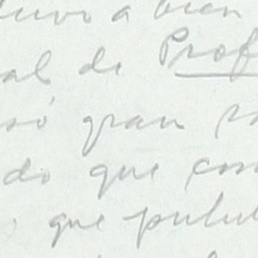 tuvo a bien
al de Prof
só gran
do que com
que pulul